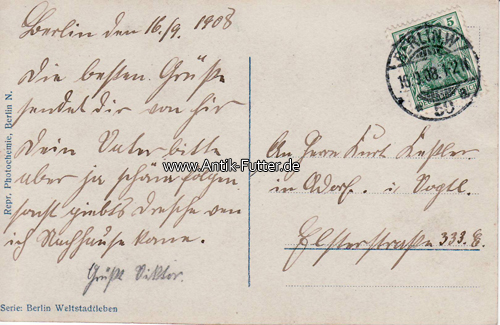 Berlin den 16/9. 1908
Die besten Grüße
sendet dir von hir
Dein Vater, bitte
aber ja schön folgen
sonst giebts Dresche wen
ich Nachhause kome.
Grüße Viktor.
An Herr Kurt Keßler
in Adorf. i. Vogtl.
Elsterstraße 333.
BERLIN.W.
5
50 a
www.Antik-Futter.de
Repr. Photochemie, Berlin N.
Serie: Berlin Weltstadtleben